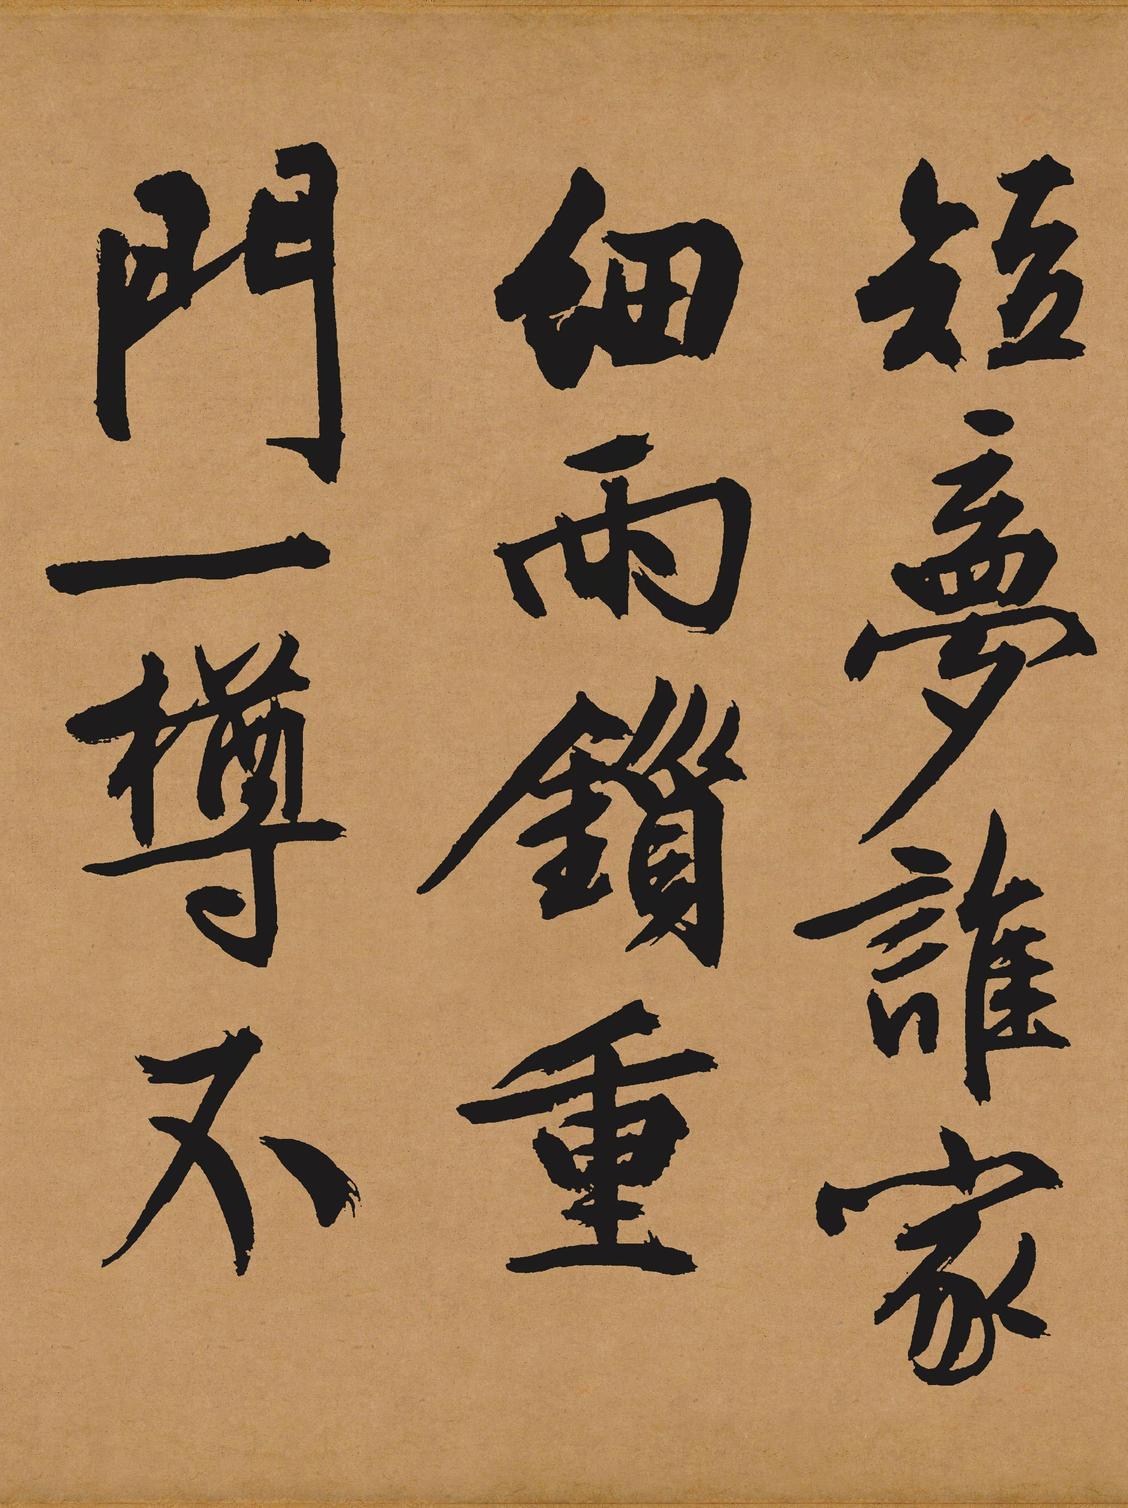 短夢誰家
細雨鎖重
門一樽不